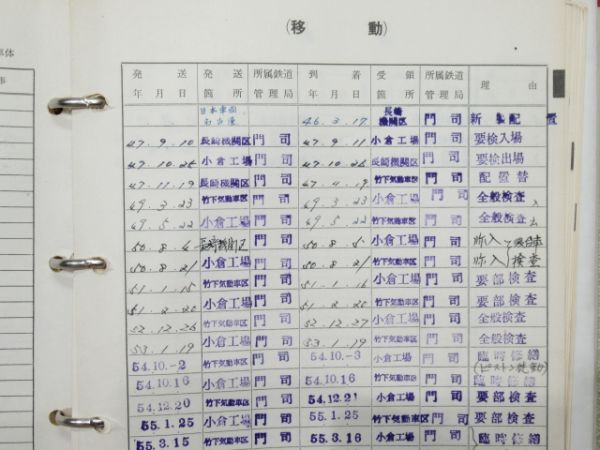 (移 動)
発送 年月日 発送 箇所 所属鉄道 管理局 到着 年月日 受領 箇所 所属鉄道 管理局 理由
日本車両 46.3.17 長崎機関区 門司 新製配置
47.9.10 長崎機関区 門司 47.9.11 小倉工場 門司 要検入場
47.10.26 小倉工場 門司 47.10.26 長崎機関区 門司 要検出場
47.11.19 長崎機関区 門司 47.11.19 竹下気動車区 門司 配置替
49.3.23 竹下気動車区 門司 49.3.23 小倉工場 門司 全般検査 入
49.5.22 小倉工場 門司 49.5.22 竹下気動車区 門司 全般検査 出
50.8.6 門司 50.8. 小倉工場 門司
50.8.21 小倉工場 門司 50.8.21 竹下気動車区 門司 検査
51.1.15 竹下気動車区 門司 51.1.16 小倉工場 門司 要部検査
51.2.20 小倉工場 門司 51.2.20 竹下気動車区 門司 要部検査
52.12.26 竹下気動車区 門司 52.12.27 小倉工場 門司 全般検査
53.1.19 小倉工場 門司 53.1.19 竹下気動車区 門司 全般検査
54.10.-2 竹下気動車区 門司 54.10.-3 小倉工場 門司 臨時修繕
54.10.16 小倉工場 門司 54.10.16 竹下気動車区 門司 臨時修繕
54.12.20 竹下気動車区 門司 54.12.21 小倉工場 門司 要部検査
55.1.25 小倉工場 門司 55.1.25 竹下気動車区 門司 要部検査
55.3.15 竹下気動車区 門司 55.3.16 小倉工場 門司 臨時修繕